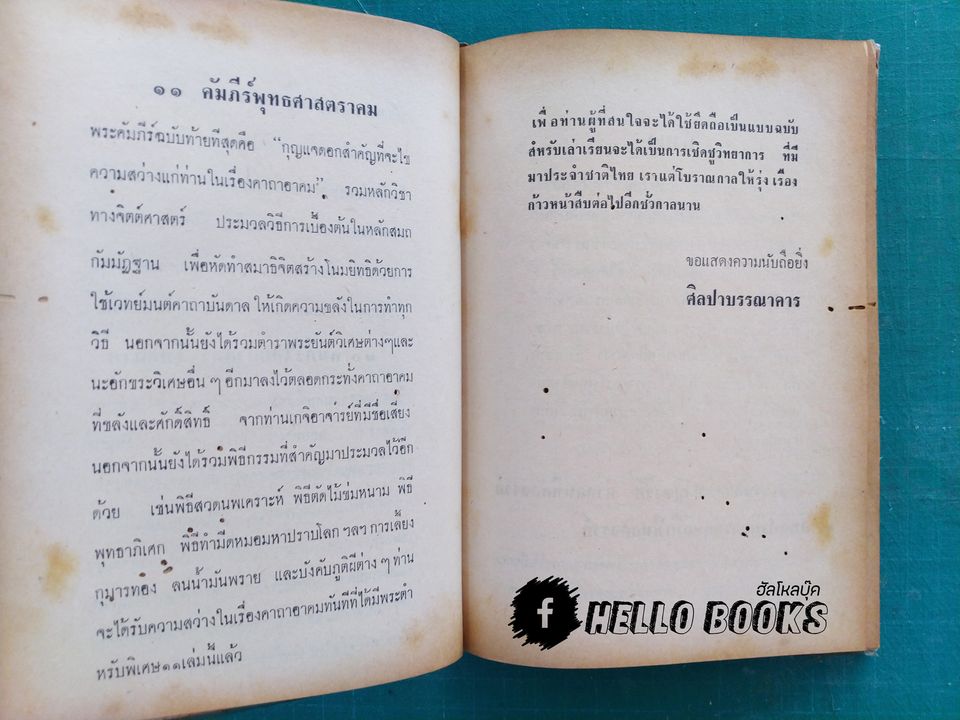 ๑๑ คัมภีร์พุทธศาสตราคม
พระคัมภีร์ฉบับท้ายที่สุดคือ "กุญแจดอกสำคัญที่จะไข
ความสว่างแก่ท่านในเรื่องคาถาอาคม" รวมหลักวิชา
ทางจิตต์ศาสตร์ ประมวลวิธีการเบื้องต้นในหลักสมถ
กัมมัฏฐาน เพื่อหัดทำสมาธิจิตสร้างโนมยิทธิด้วยการ
ใช้เวทย์มนต์คาถาบันดาล ให้เกิดความขลังในการทำทุก
วิธี นอกจากนั้นยังได้รวมตำราพระยันต์วิเศษต่างๆและ
นะอักขระวิเศษอื่น ๆ อีกมาลงไว้ตลอดกระทั่งคาถาอาคม
ที่ขลังและศักดิ์สิทธิ์ จากท่านเกจิอาจารย์ที่มีชื่อเสียง
นอกจากนั้นยังได้รวมพิธีกรรมที่สำคัญมาประมวลไว้อีก
ด้วย เช่นพิธีสวดนพเคราะห์ พิธีตัดไม้ข่มหนาม พิธี
พุทธาภิเศก พิธีทำมีดหมอมหาปราบโลก ฯลฯ การเลี้ยง
กุมารทอง ลนน้ำมันพราย และบังคับภูติผีต่าง ๆ ท่าน
จะได้รับความสว่างในเรื่องคาถาอาคมทันทีที่ได้มีพระตำ
หรับพิเศษ๑๑เล่มนี้แล้ว
เพื่อท่านผู้ที่สนใจจะได้ใช้ยึดถือเป็นแบบฉบับ
สำหรับเล่าเรียนจะได้เป็นการเชิดชูวิทยาการ ที่มี
มาประจำชาติไทย เราแต่โบราณกาลให้รุ่ง เรือง
ก้าวหน้าสืบต่อไปอีกชั่วกาลนาน
ขอแสดงความนับถือยิ่ง
ศิลปาบรรณาคาร
ฮัลโหลบุ๊ค
f HELLO BOOKS